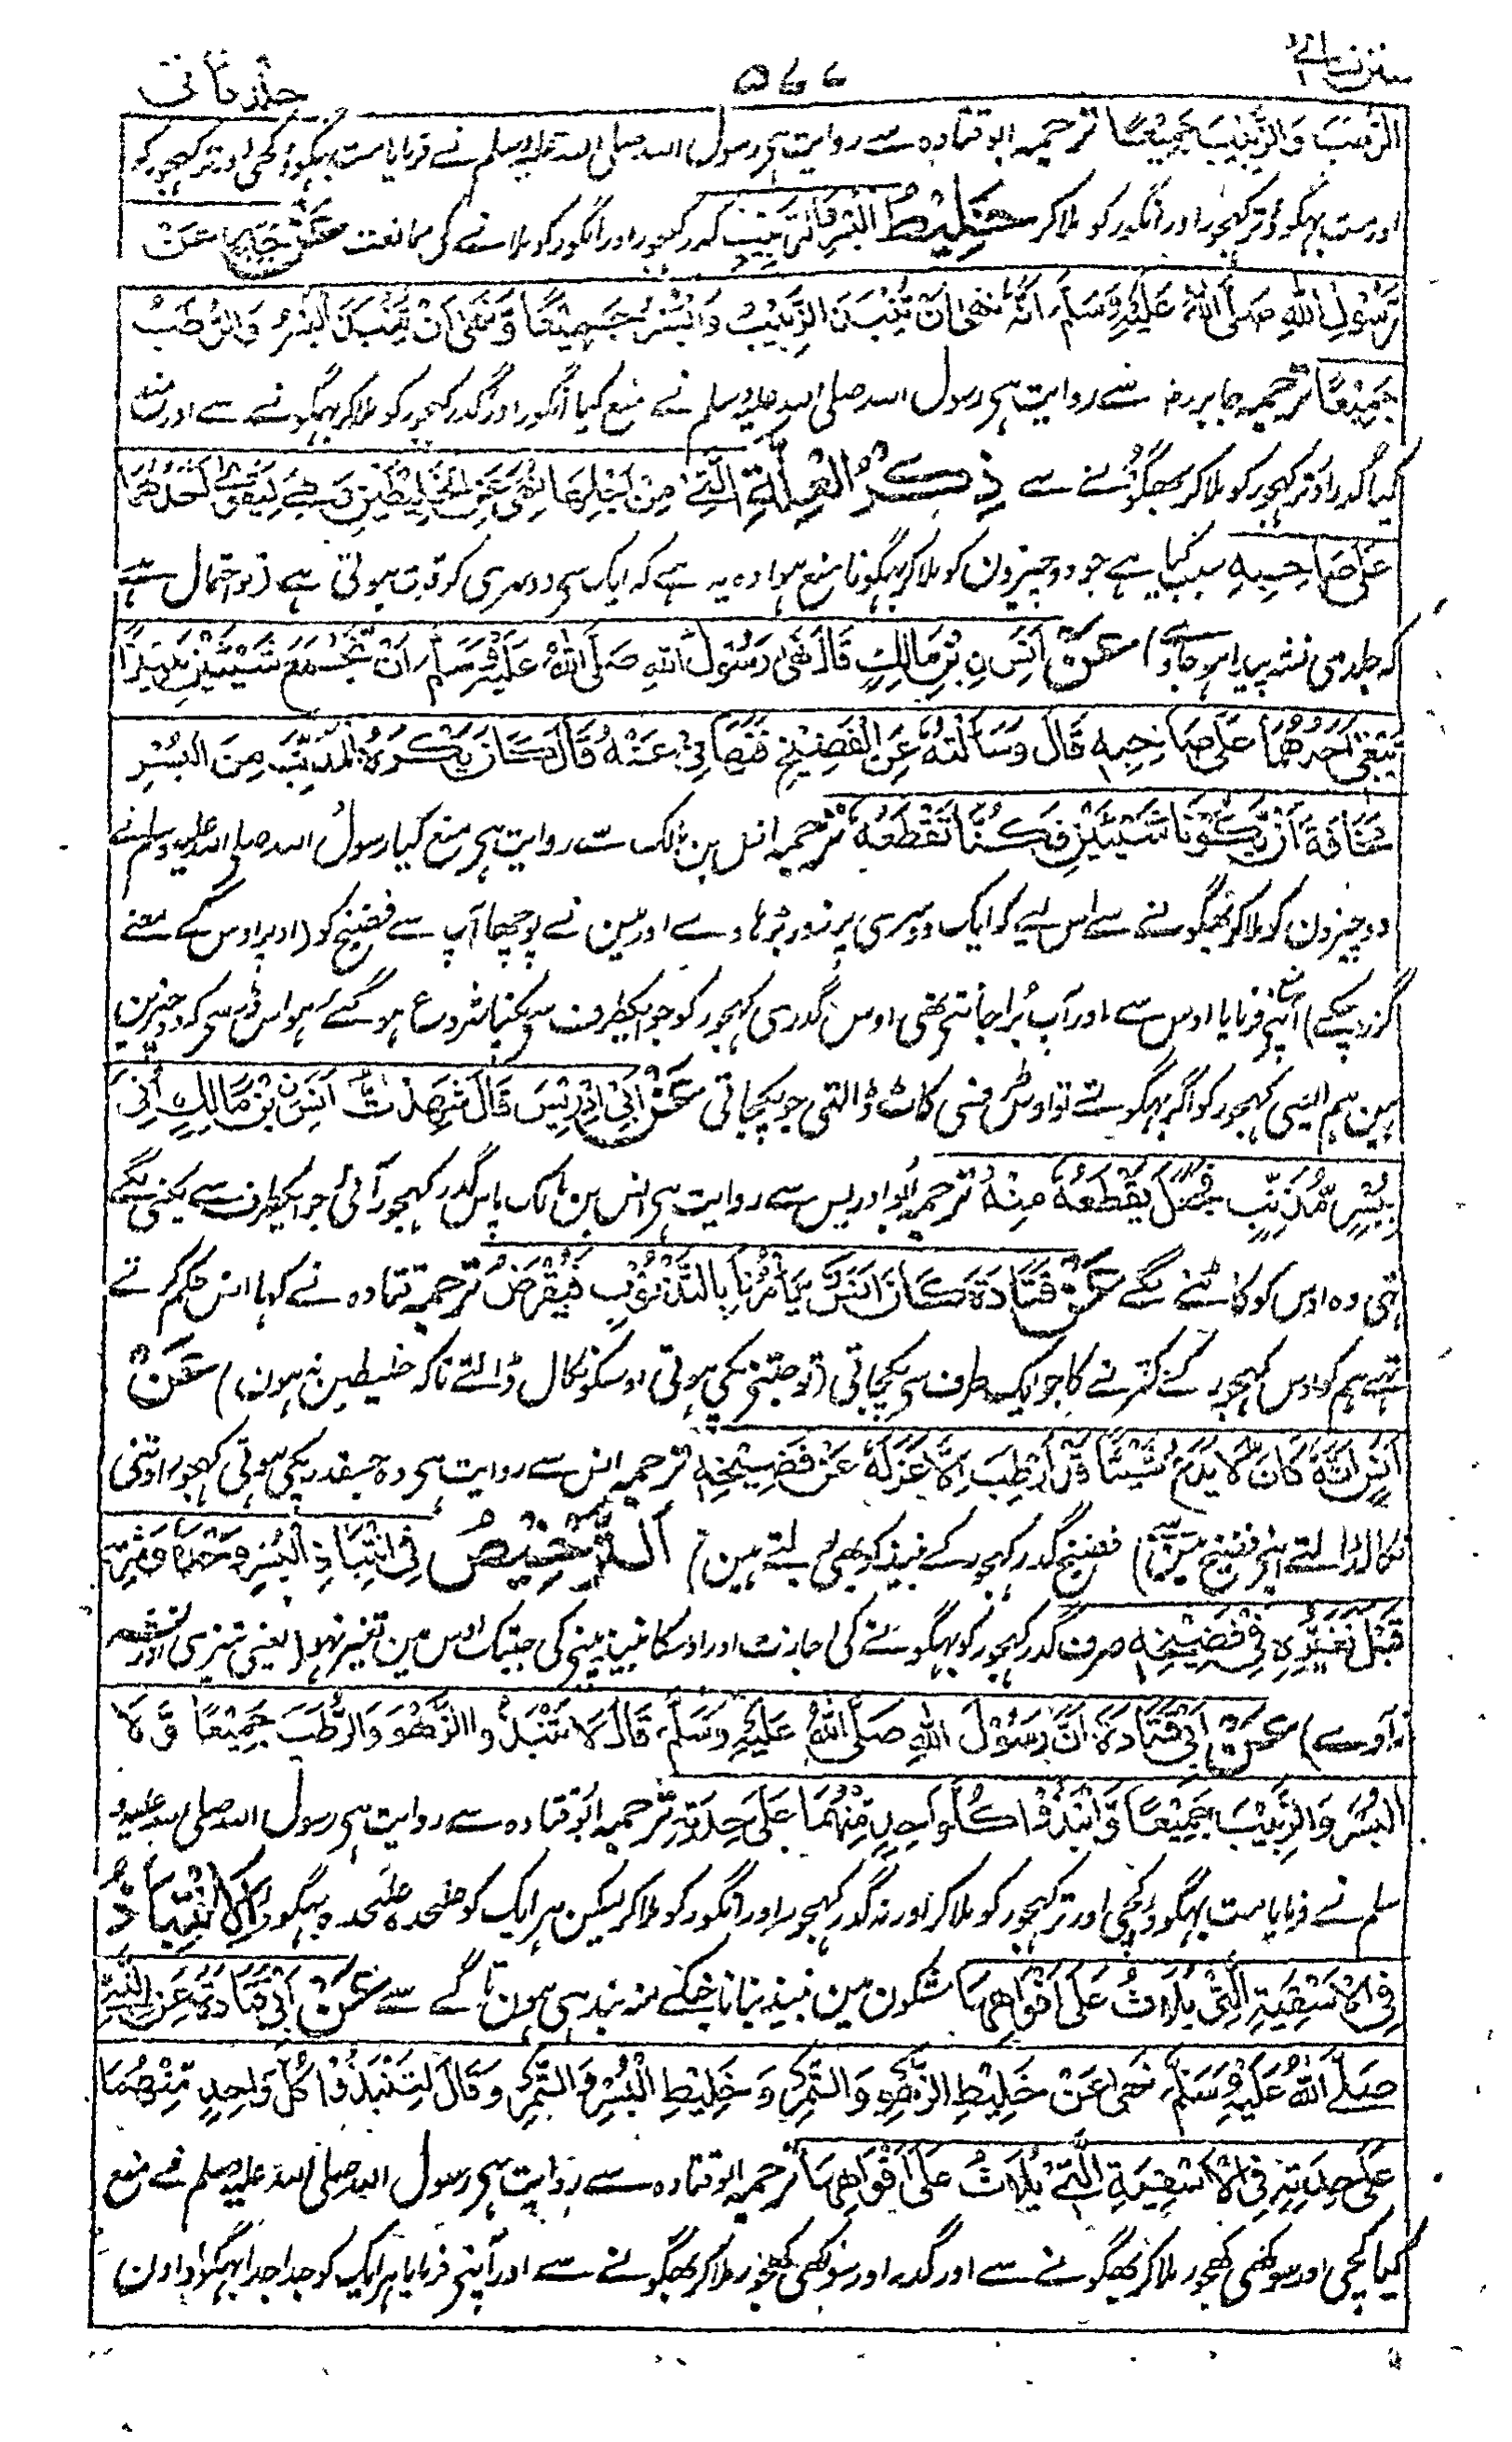 سنن نسائی ۵۷۷ جلد ثانی
الرطب والزبیب جمیعًا ترجمہ ابو قتادہ سے روایت ہی رسول اللہ صلی اللہ علیہ وسلم نے فرمایا مت بہگوؤ کچی اور تر کہجور کو
اور مت بہگوؤ تر کہجور اور انگور کو ملا کر خَلِیْطُ الْبُسْرِ وَالزَّبِیْبِ گدر کہجور اور انگور کو ملانے کی ممانعت عَنْ جَابِرٍ عَنْ
رَسُوْلِ اللّٰهِ صَلَّی اللّٰهُ عَلَیْهِ وَسَلَّمَ اَنَّهٗ نَهٰی اَنْ یُنْبَذَ الزَّبِیْبُ وَالْبُسْرُ جَمِیْعًا وَّنَهٰی اَنْ یُّنْبَذَ الْبُسْرُ وَالرُّطَبُ
جَمِیْعًا ترجمہ جابر رضہ سے روایت ہی رسول اللہ صلی اللہ علیہ وسلم نے منع کیا انگور اور گدر کہجور کو ملا کر بہگونے سے اور منع
کیا گدر اور تر کہجور کو ملا کر بھگونے سے ذِکْرُ الْعِلَّةِ الَّتِیْ مِنْ اَجْلِهَا نُهِیَ عَنِ الْخَلِیْطَیْنِ وَهِیَ لِیَقْوٰی اَحَدُهُمَا
عَلٰی صَاحِبِهٖ سبب کیا ہے جو دو چیزون کو ملا کر بہگونا منع ہوا وہ یہ ہے کہ ایک سی دوسری کو قوت ہوتی ہے (تو احتمال ہے
کہ جلدی نشہ پیدا ہو جاوے) عَنْ اَنَسِ بْنِ مَالِكٍ قَالَ نَهٰی رَسُوْلُ اللّٰهِ صَلَّی اللّٰهُ عَلَیْهِ وَسَلَّمَ اَنْ نَجْمَعَ شَیْئَیْنِ نَبِیْذًا
یَبْغِیْ اَحَدُهُمَا عَلٰی صَاحِبِهٖ قَالَ وَسَاَلْتُهٗ عَنِ الْفَضِیْخِ فَنَهَانِیْ عَنْهُ قَالَ کَانَ یَکْرَهُ الْمُذَنَّبَ مِنَ الْبُسْرِ
مَخَافَةَ اَنْ یَّکُوْنَا شَیْئَیْنِ فَکُنَّا نَقْطَعُهٗ ترجمہ انس بن مالک سے روایت ہی منع کیا رسول اللہ صلی اللہ علیہ وسلم نے
دو چیزون کو ملا کر بھگونے سے اس لیے کہ ایک دوسری پر زور بڑہا دے اور مین نے پوچھا آپ سے فضیخ کو (اوپر اوس کے معنے
گزر چکے) آپنے منع فرمایا اوس سے اور آپ بُرا جانتے تھے اوس گدری کہجور کو جو ایکطرف سے پکنا شروع ہو گئے ہو اس ڈر سے کہ دو چیزین
ہین ہم ایسی کہجور کو اگر بہگوتے تو اوتنی کاٹ ڈالتی جو پکجاتی عَنْ اَبِیْ اِدْرِیْسَ قَالَ شَهِدْتُّ اَنَسَ بْنَ مَالِكٍ اُتِیَ
بِبُسْرٍ مُّذَنَّبٍ فَجَعَلَ یَقْطَعُهٗ مِنْهُ ترجمہ ابو ادریس سے روایت ہی انس بن مالک پاس گدر کہجور آئی جو ایکطرف سے پکنی لگے
تہی وہ اوس کو کاٹنے لگے عَنْ قَتَادَةَ کَانَ اَنَسٌ یَأْمُرُنَا بِالتَّذْنُوْبِ فَیُقْرَضُ ترجمہ قتادہ نے کہا انس حکم کرتے
تہے ہم کو اوس کہجور کے کترنے کا جو ایک طرف سی پکجاتی (تو جتنی پکی ہوتی اوسکو نکال ڈالتے تاکہ خلیطین نہ ہون) عَنْ
اَنَسٍ اَنَّهٗ کَانَ لَا یَدَعُ شَیْئًا قَدْ اَرْطَبَ اِلَّا عَزَلَهٗ عَنْ فَضِیْخِهٖ ترجمہ انس سے روایت ہی وہ جسقدر پکی ہوتی کھجور اوتنی
نکال ڈالتے اپنے فضیخ مین سے) فضیخ گدر کہجور کے نبیذ کو بھی بولتے ہین) اَلتَّرْخِیْصُ فِی انْتِبَاذِ الْبُسْرِ وَحْدَهٗ وَشُرْبِهٖ
قَبْلَ تَغَیُّرِهٖ فِیْ فَضِیْخِهٖ صرف گدر کہجور کو بہگونے کی اجازت اور اوسکا نبیذ پینے کی جبتک اوس مین تغیر نہو (یعنی تیزی اور نشہ
نہ آوے) عَنْ اَبِیْ قَتَادَةَ اَنَّ رَسُوْلَ اللّٰهِ صَلَّی اللّٰهُ عَلَیْهِ وَسَلَّمَ قَالَ لَا تَنْبِذُوا الزَّهْوَ وَالرُّطَبَ جَمِیْعًا وَّلَا
الْبُسْرَ وَالزَّبِیْبَ جَمِیْعًا وَّانْبِذُوْا کُلَّ وَاحِدٍ مِّنْهُمَا عَلٰی حِدَتِهٖ ترجمہ ابو قتادہ سے روایت ہی رسول اللہ صلی اللہ علیہ و
سلم نے فرمایا مت بہگوؤ کچی اور تر کہجور کو ملا کر اور نہ گدر کہجور اور انگور کو ملا کر لیکن ہر ایک کو علیحدہ علیحدہ بہگوؤ اَلْاِنْتِبَاذُ
فِی الْاَسْقِیَةِ الَّتِیْ یُلَاثُ عَلٰی اَفْوَاهِهَا مشکون مین نبیذ بنانا جنکے منہ بندہی ہون تاگے سے عَنْ اَبِیْ قَتَادَةَ عَنِ النَّبِیِّ
صَلَّی اللّٰهُ عَلَیْهِ وَسَلَّمَ نَهٰی عَنْ خَلِیْطِ الزَّهْوِ وَالتَّمْرِ وَخَلِیْطِ الْبُسْرِ وَالتَّمْرِ وَقَالَ لِتَنْبِذُوْا کُلَّ وَاحِدٍ مِّنْهُمَا
عَلٰی حِدَتِهٖ فِی الْاَسْقِیَةِ الَّتِیْ یُلَاثُ عَلٰی اَفْوَاهِهَا ترجمہ ابو قتادہ سے روایت ہی رسول اللہ صلی اللہ علیہ وسلم نے منع
کیا کچی اور سوکھی کھجور ملا کر بھگونے سے اور گدر اور سوکھی کھجور ملا کر بھگونے سے اور آپنے فرمایا ہر ایک کو جدا جدا بہگوؤ اون